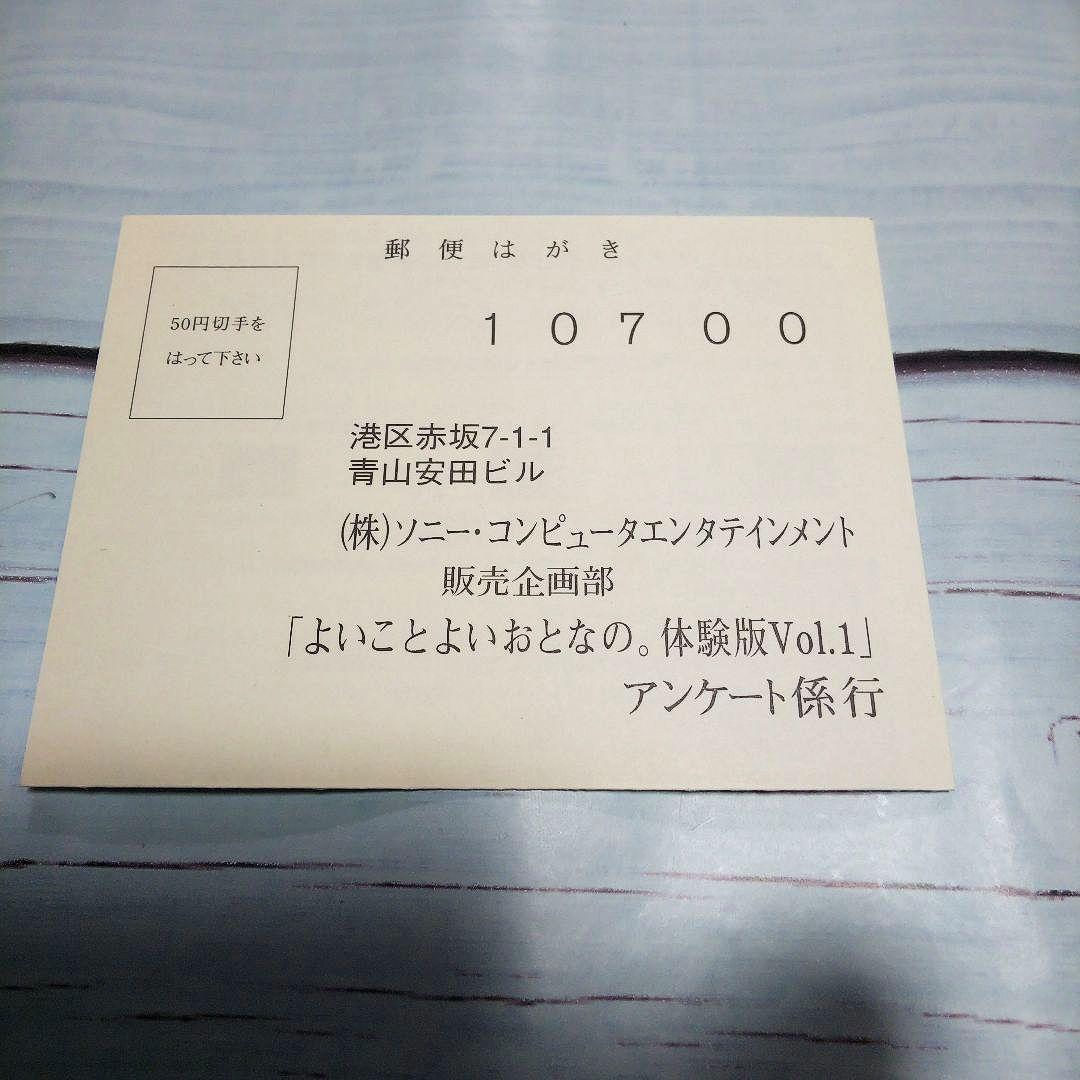 郵便はがき
50円切手を
はって下さい
10700
港区赤坂7-1-1
青山安田ビル
(株)ソニー・コンピュータエンタテインメント
販売企画部
「よいことよいおとなの。体験版Vol.1」
アンケート係行